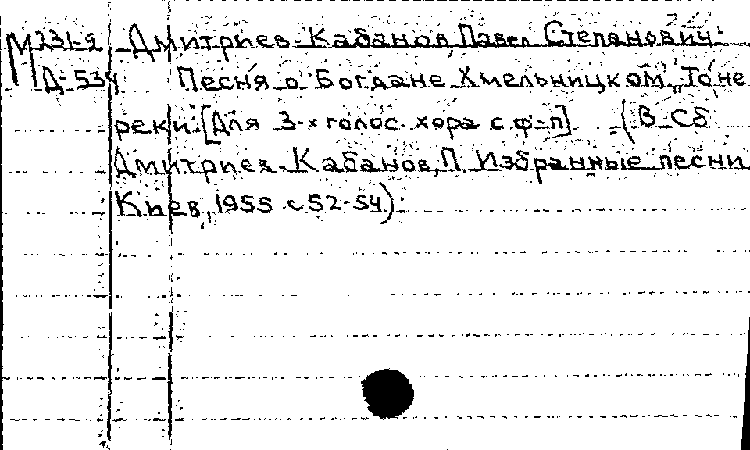 М 231-2 Дмитриев-Кабанов, Павел Степанович.
Д-534 Песня о Богдане Хмельницком „То не
реки. [Для 3-х голос. хора с ф-п]. - (В сб
Дмитриев-Кабанов, П. Избранные песни
Киев, 1955 с 52-54).